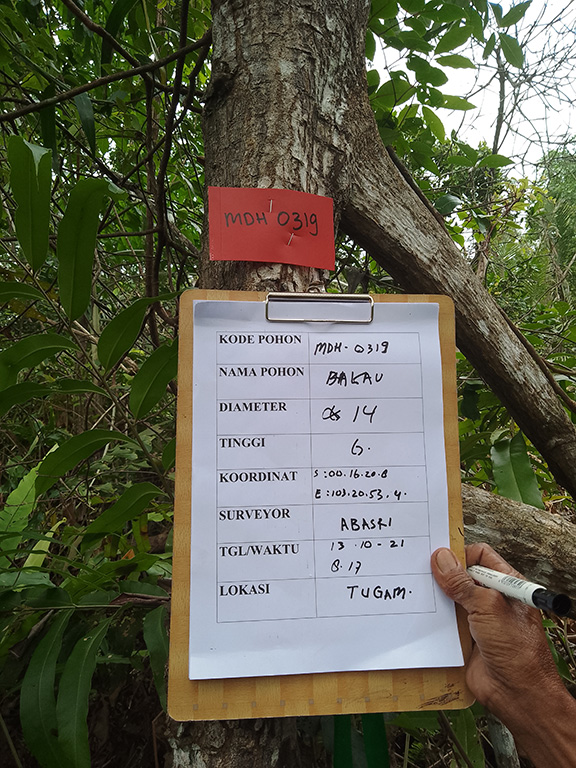 MDH 0319
KODE POHON MDH-0319
NAMA POHON BAKAU
DIAMETER 14
TINGGI 6.
KOORDINAT S:00.16.20.8
E:103.20.53.4.
SURVEYOR ABASRI
TGL/WAKTU 13.10-21
8.17
LOKASI TUGAM.